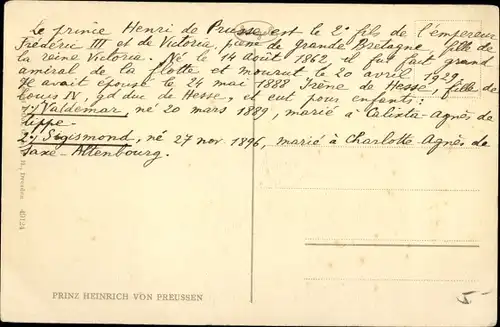 Le prince Henri de Prusse est le 2e fils de l'empereur
Frédéric III et de Victoria, de Grande Bretagne, fille de
la reine Victoria. Né le 14 Août 1862, il fut fait grand
amiral de la flotte et mourut, le 20 avril 1929.
Il avait épousé le 24 mai 1888 Irène de Hesse, fille de
Louis IV, gd duc de Hesse, et eut pour enfants:
1) Valdemar, né 20 mars 1889, marié à Calixta-Agnès de
Lippe.
2) Sigismond, né 27 nov. 1896, marié à Charlotte-Agnès de
Saxe-Altenbourg.
Dresden
PRINZ HEINRICH VON PREUSSEN